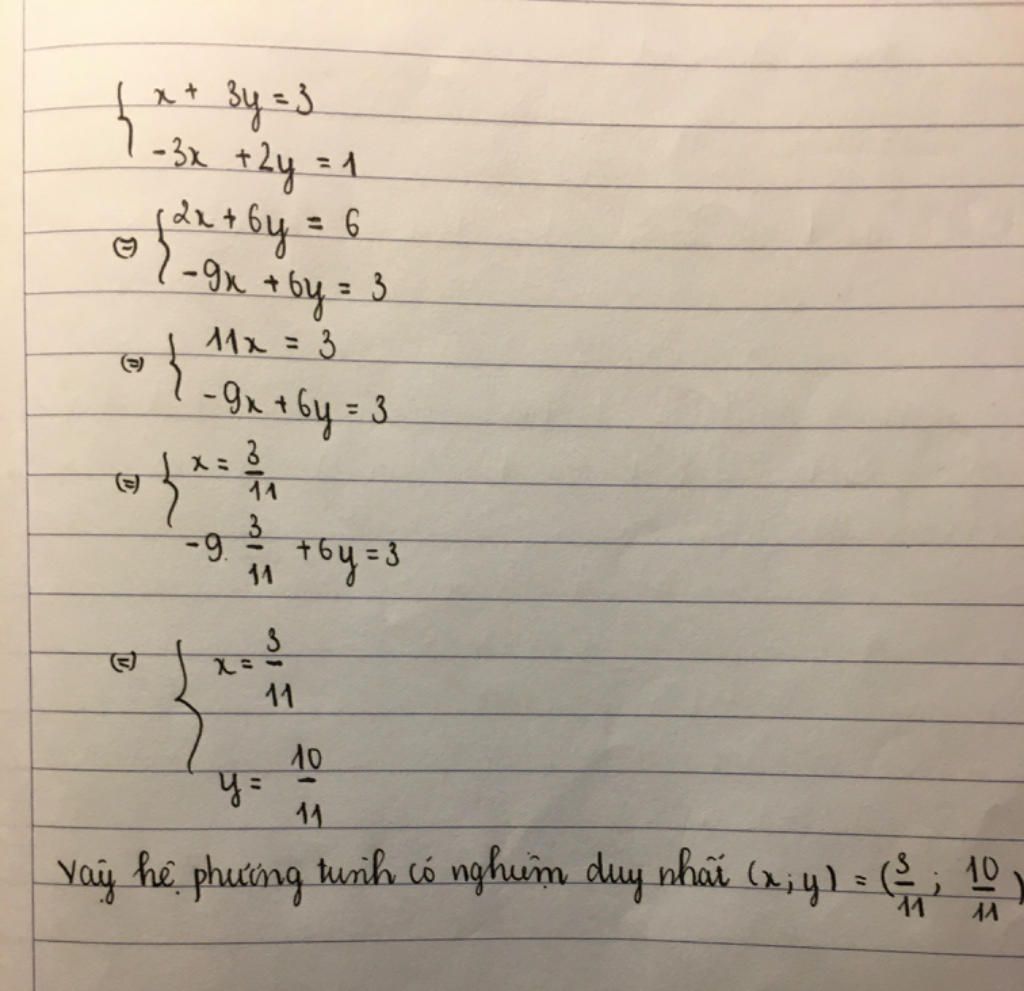 { x + 3y = 3
-3x + 2y = 1
(=) { 2x + 6y = 6
-9x + 6y = 3
(=) { 11x = 3
-9x + 6y = 3
(=) { x = 3/11
-9. 3/11 + 6y = 3
(=) { x = 3/11
y = 10/11
Vậy hệ phương trình có nghiệm duy nhất (x;y) = (3/11; 10/11)